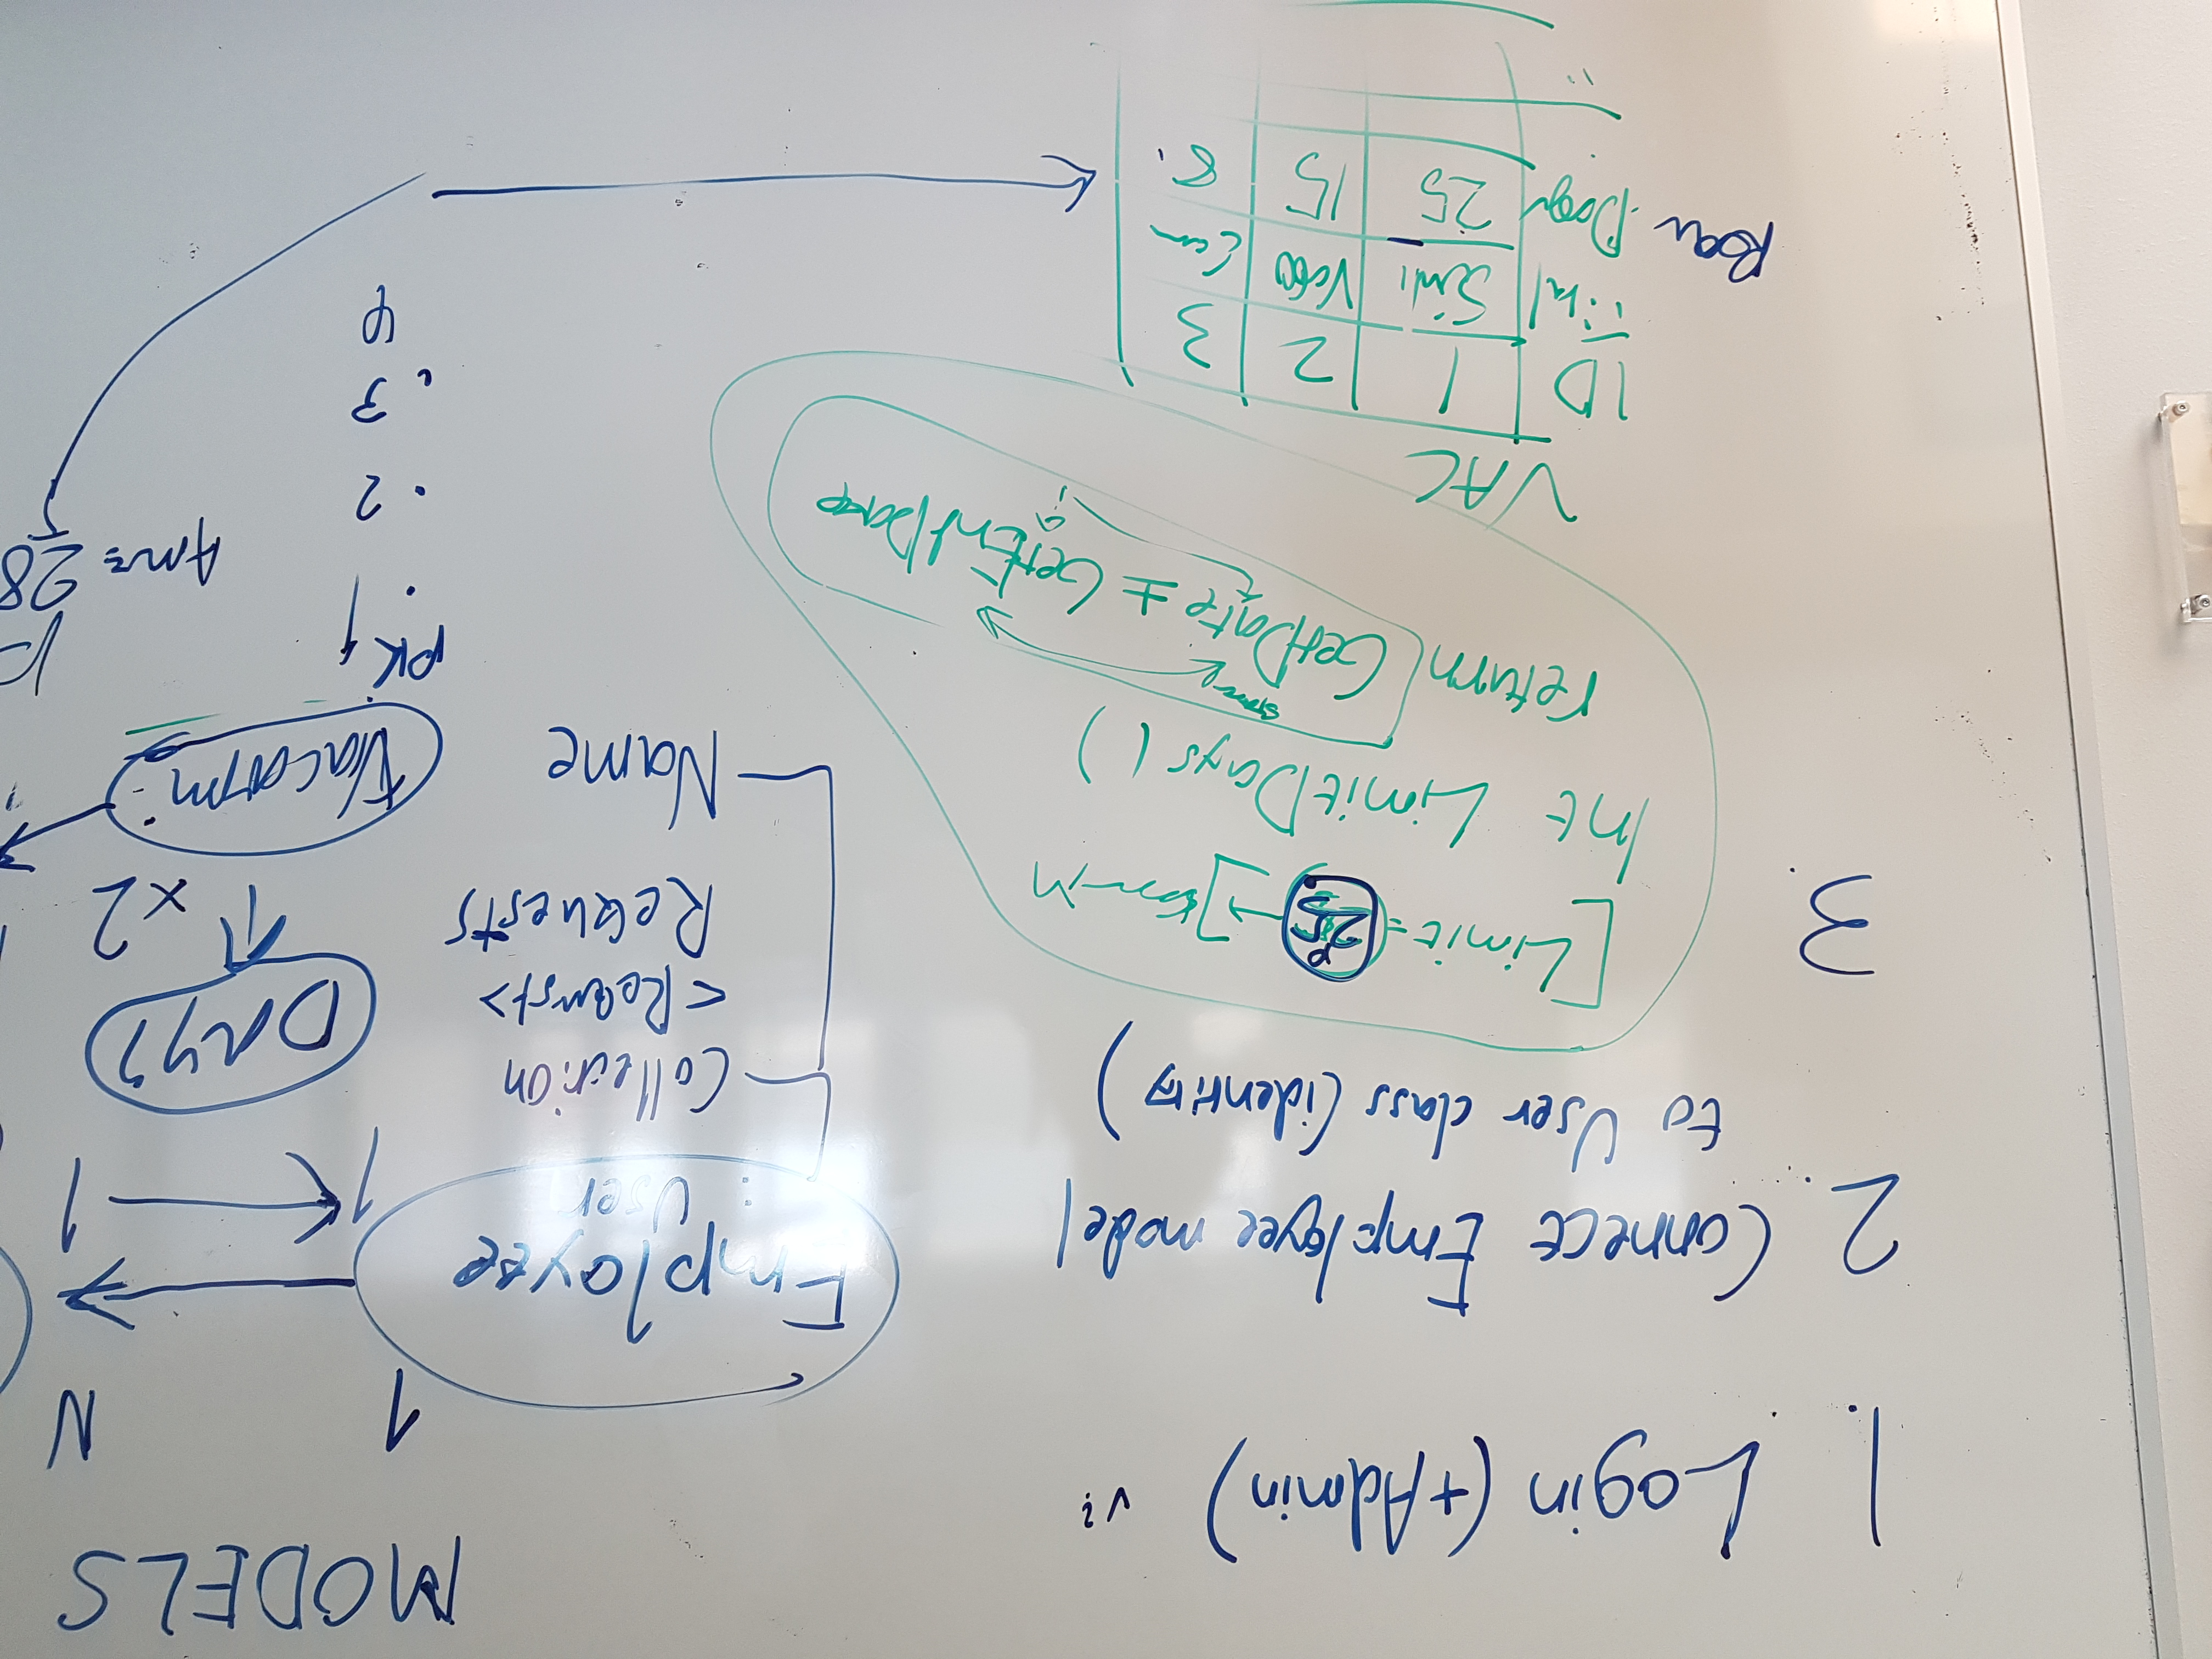 MODELS
1. Login (+Admin) v?
2. Connect Employee model
to User class (identity)
3.
[Limit = 25 → ]
Int LimitDays ()
return GetDate ± GetEndDate
VAC
ID 1 2 3
25 15 8.
1 N
Employee
: User
1 1
Collection
<Request>
Requests
Name
x2
PK 1
2
3
28